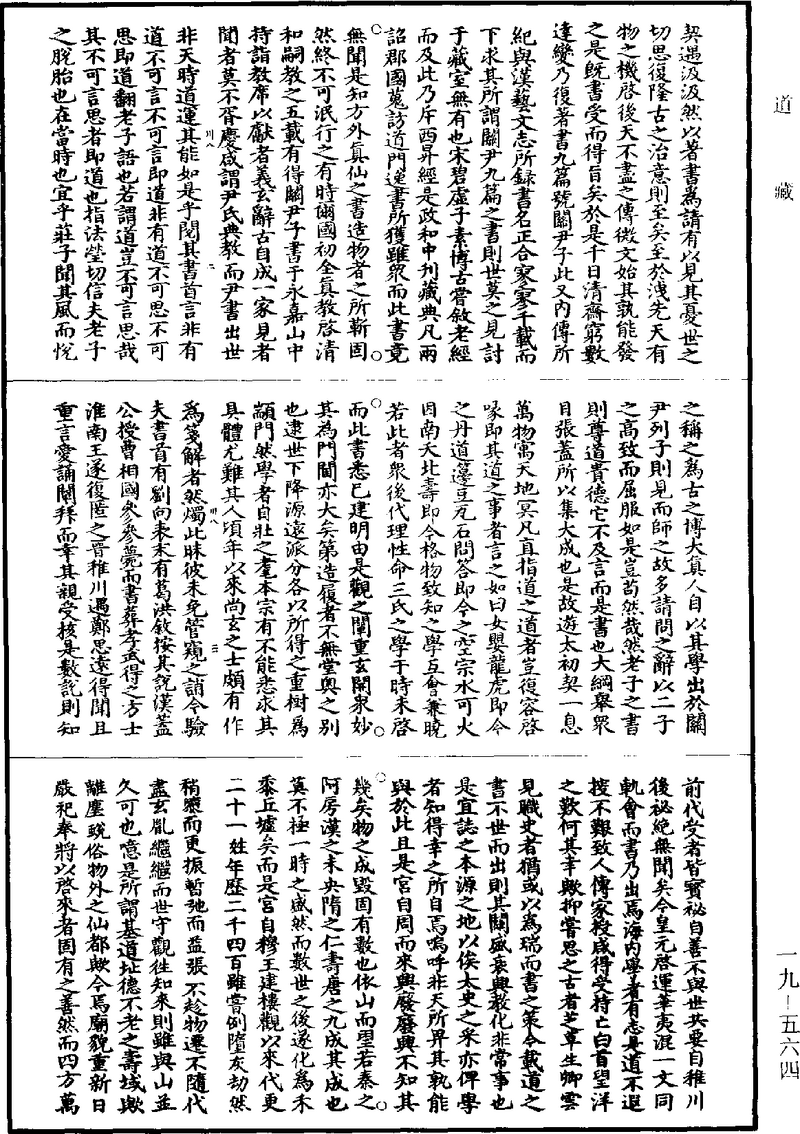 道藏
契遇汲汲然以著書為請有以見其憂世之
切思復隆古之冶意則至矣至於洩先天有
物之機啓後天不盡之傳微文始其孰能發
之是旣書受而得旨矣於是千日清齋窮數
達變乃復著書九篇號關尹子此又內傳所
紀與漢藝文志所録書名正合寥寥千載而
下求其所謂關尹九篇之書則世莫之見討
于藏室無有也宋碧虛子素博古嘗敘老經
而及此乃斥西昇經是政和中刋藏典凡兩
詔郡國蒐訪道門逸書所獲雖衆而此書竟
無聞是知方外眞仙之書造物者之所靳固
然終不可泯行之有時爾國初全眞教啓清
和嗣教之五載有得關尹子書于永嘉山中
持詣教席以獻者義玄辭古自成一家見者
聞者莫不胥慶咸謂尹氏典教而尹書出世
非天時道運其能如是乎閱其書首言非有
道不可言不可言即道非有道不可思不可
思即道翻老子語也若謂道豈不可言思哉
其不可言思者即道也指法瑩切信夫老子
之脫胎也在當時也宜乎莊子聞其風而悅
之稱之為古之博大眞人自以其學出於關
尹列子則見而師之故多請問之辭以二子
之高致而屈服如是豈苟然哉然老子之書
則尊道貴德它不及言而是書也大綱舉衆
目張蓋所以集大成也是故遊太初契一息
萬物寓天地冥凡直指道之道者豈復容啓
喙即其道之事者言之如曰女嬰龍虎即今
之丹道籩豆瓦石問答即今之空宗水可火
因南天北壽即今格物致知之學互會兼曉
若此者衆後代理性命三氏之學于時未啓
而此書悉已建明由是觀之闡重玄闢衆妙
其為門閫亦大矣第造履者不無堂奧之别
也逮世下降源遠派分各以所得之重樹為
顓門然學者自壯之耄本宗有不能悉求其
具體尤難其人頃年以來尚玄之士頗有作
為箋解者然燭此昧彼未免管窺之誚今驗
夫書首有劉向表末有葛洪敘按其說漢蓋
公授曹相國參參薨而書葬孝武得之方士
淮南王遂復匿之晉稚川遇鄭思遠得聞且
重言愛誦關拜而幸其親受核是數說則知
前代受者皆寳祕自善不與世共要自稚川
後祕絶無聞矣今皇元啓運華夷混一文同
軌會而書乃出焉海内學者有志是道不遐
捜不艱致人傳家授咸得受持亡白首望洋
之歎何其幸歟抑嘗思之古者芝草生卿雲
見職史者猶或以為瑞而書之策今載道之
書不世而出則其關盛衰興教化非常事也
是宜誌之本源之地以俟太史之采亦俾學
者知得幸之所自焉嗚呼非天所畀其孰能
與於此且是宮自周而來興廢廢興不知其
幾矣物之成毀固有數也依山而䁀若秦之
阿房漢之未央隋之仁壽唐之九成其成也
莫不極一時之盛然而數世之後遂化為禾
黍丘墟矣而是宮自穆王建樓觀以來代更
二十一姓年歷二千四百雖嘗例墮灰劫然
稍隳而更振暫弛而益張不趁物遷不隨代
盡玄胤繼繼而世守觀徃知來則雖與山並
久可也噫是所謂基道址德不老之壽域歟
離塵䟽俗物外之仙都歟今焉廟貌重新日
嚴祀奉將以啓來者固有之善然而四方萬
川八
二
川八
三
一九－五六四